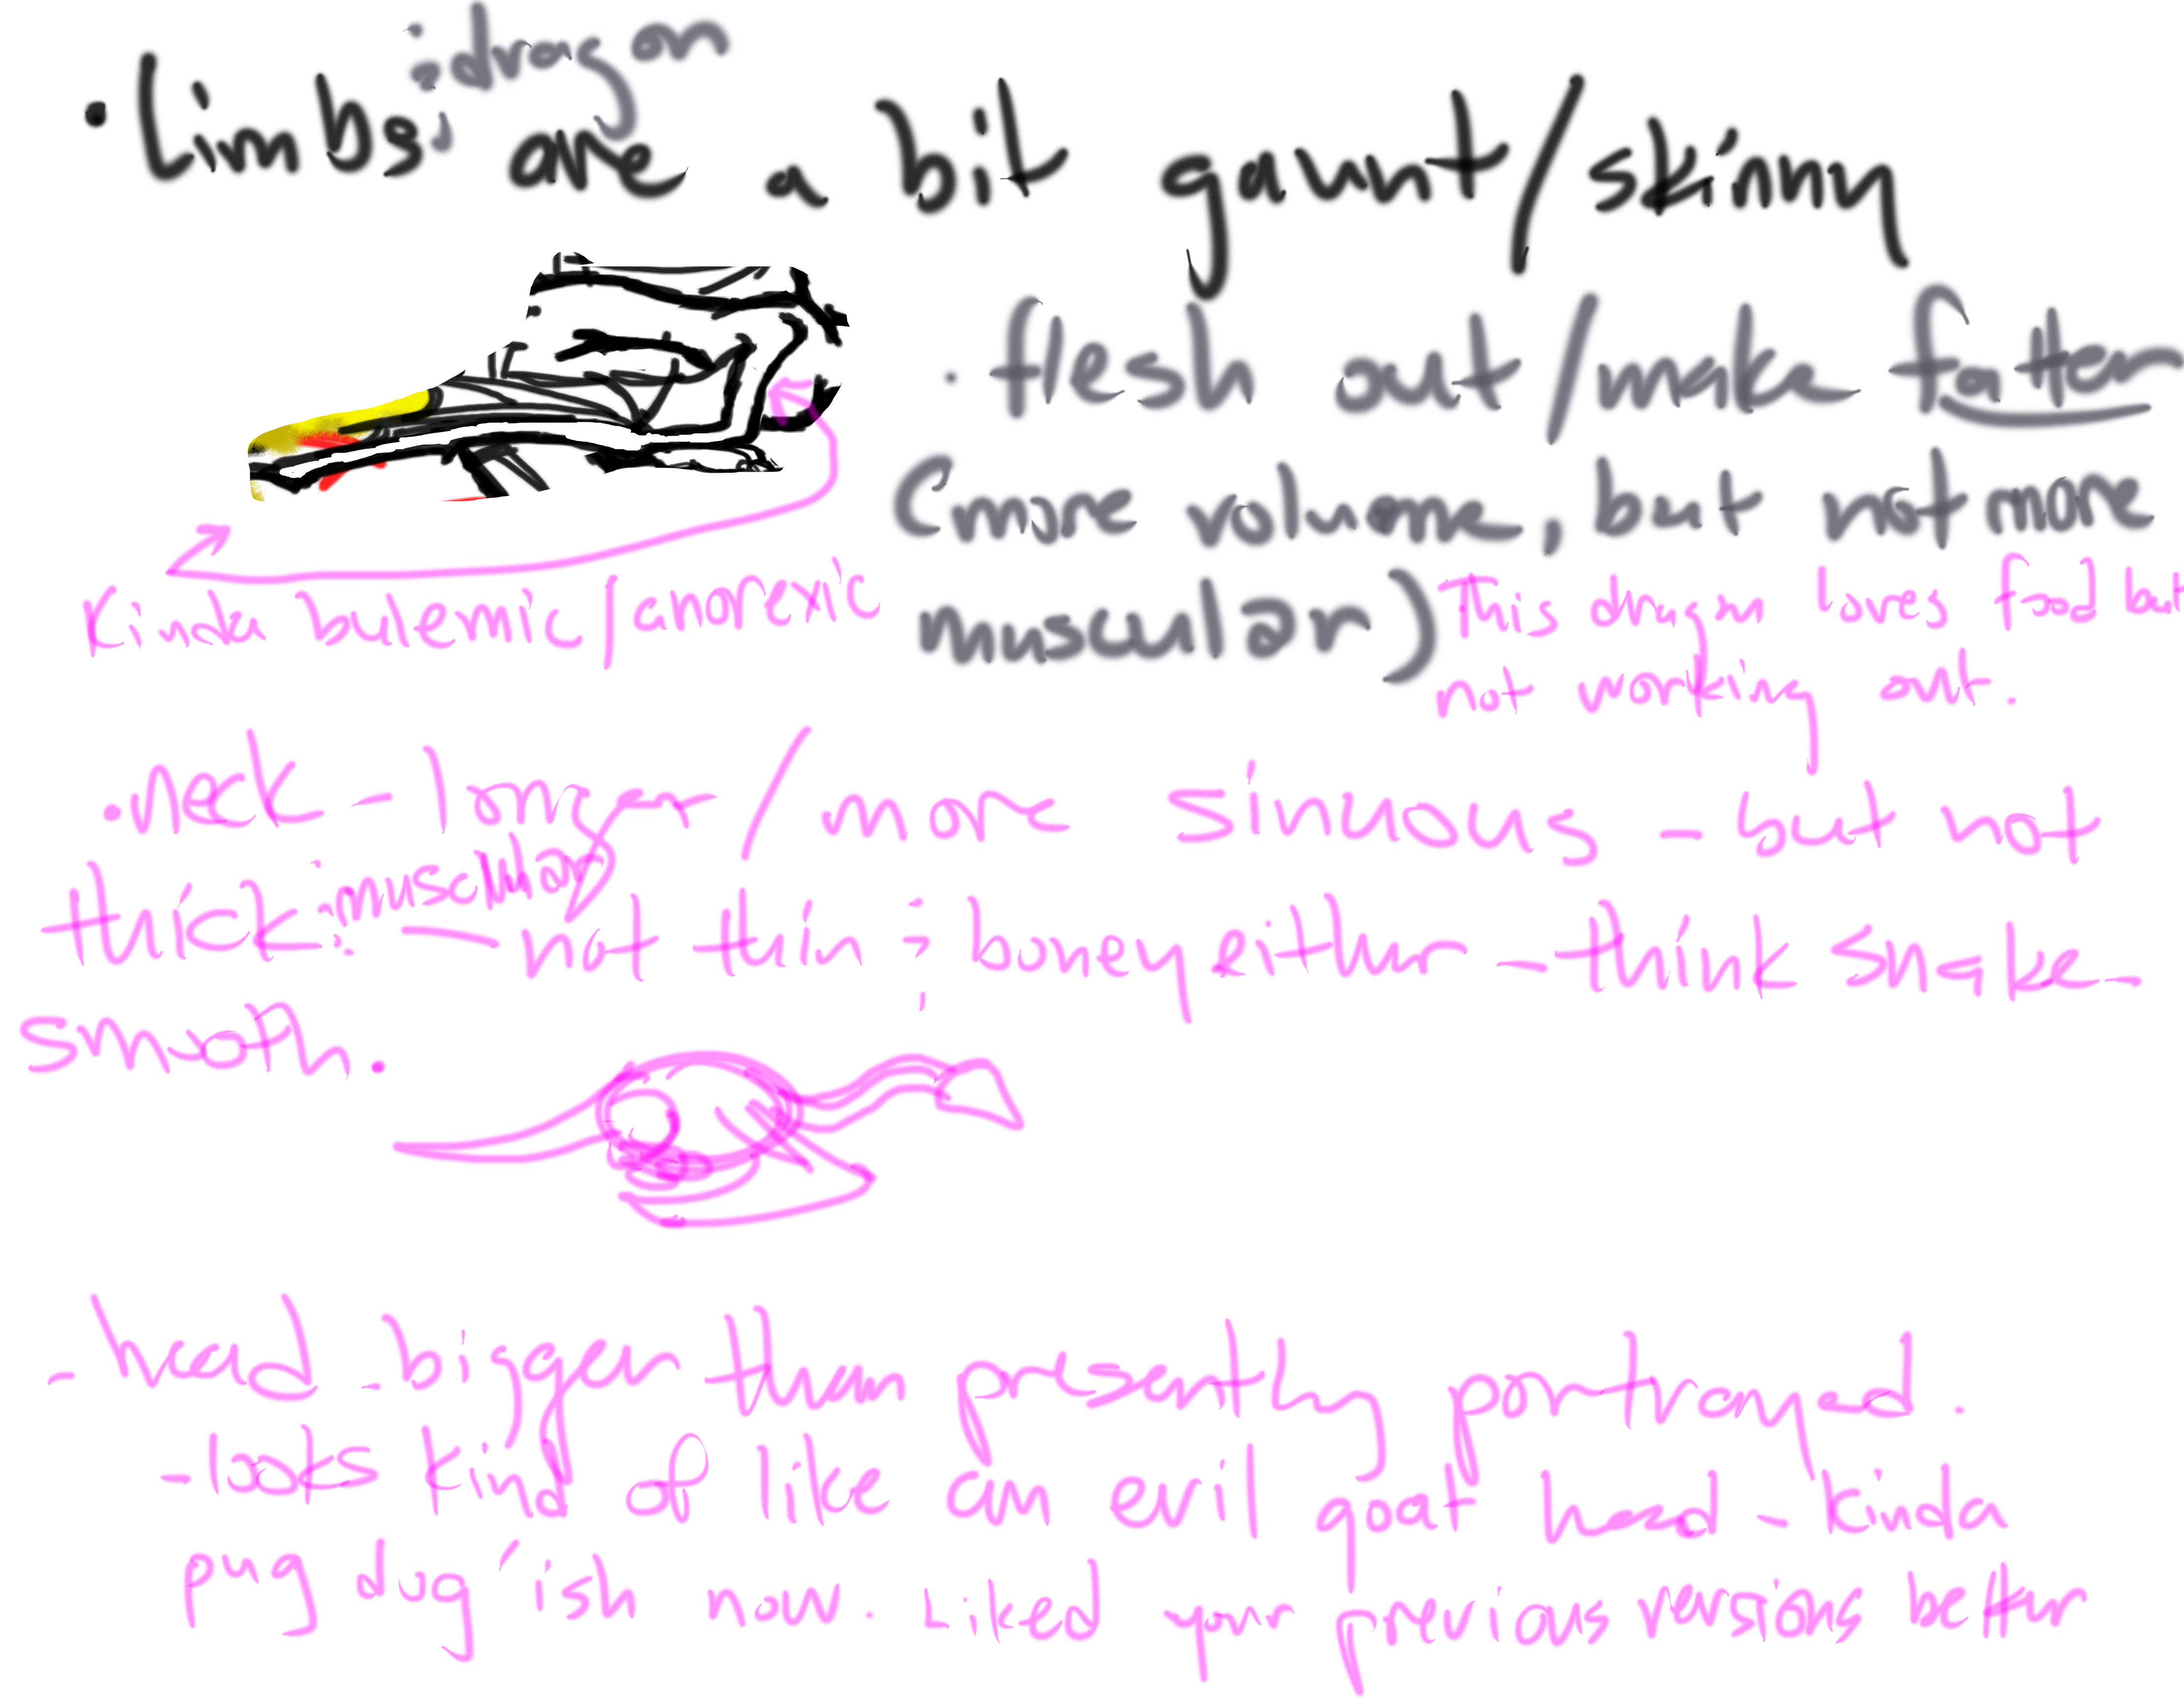 :dragon
• Limbs; are a bit gaunt/skinny
• flesh out/make fatter
(more volume, but not more
muscular)
This dragon loves food but
not working out.
Kinda bulemic/anorexic
• neck - longer/more sinuous - but not
thick: :muscular — not thin ; boney either - think snake-
smooth.
- head - bigger than presently portrayed.
- looks kind of like an evil goat head - kinda
pug dog'ish now. Liked your previous versions better